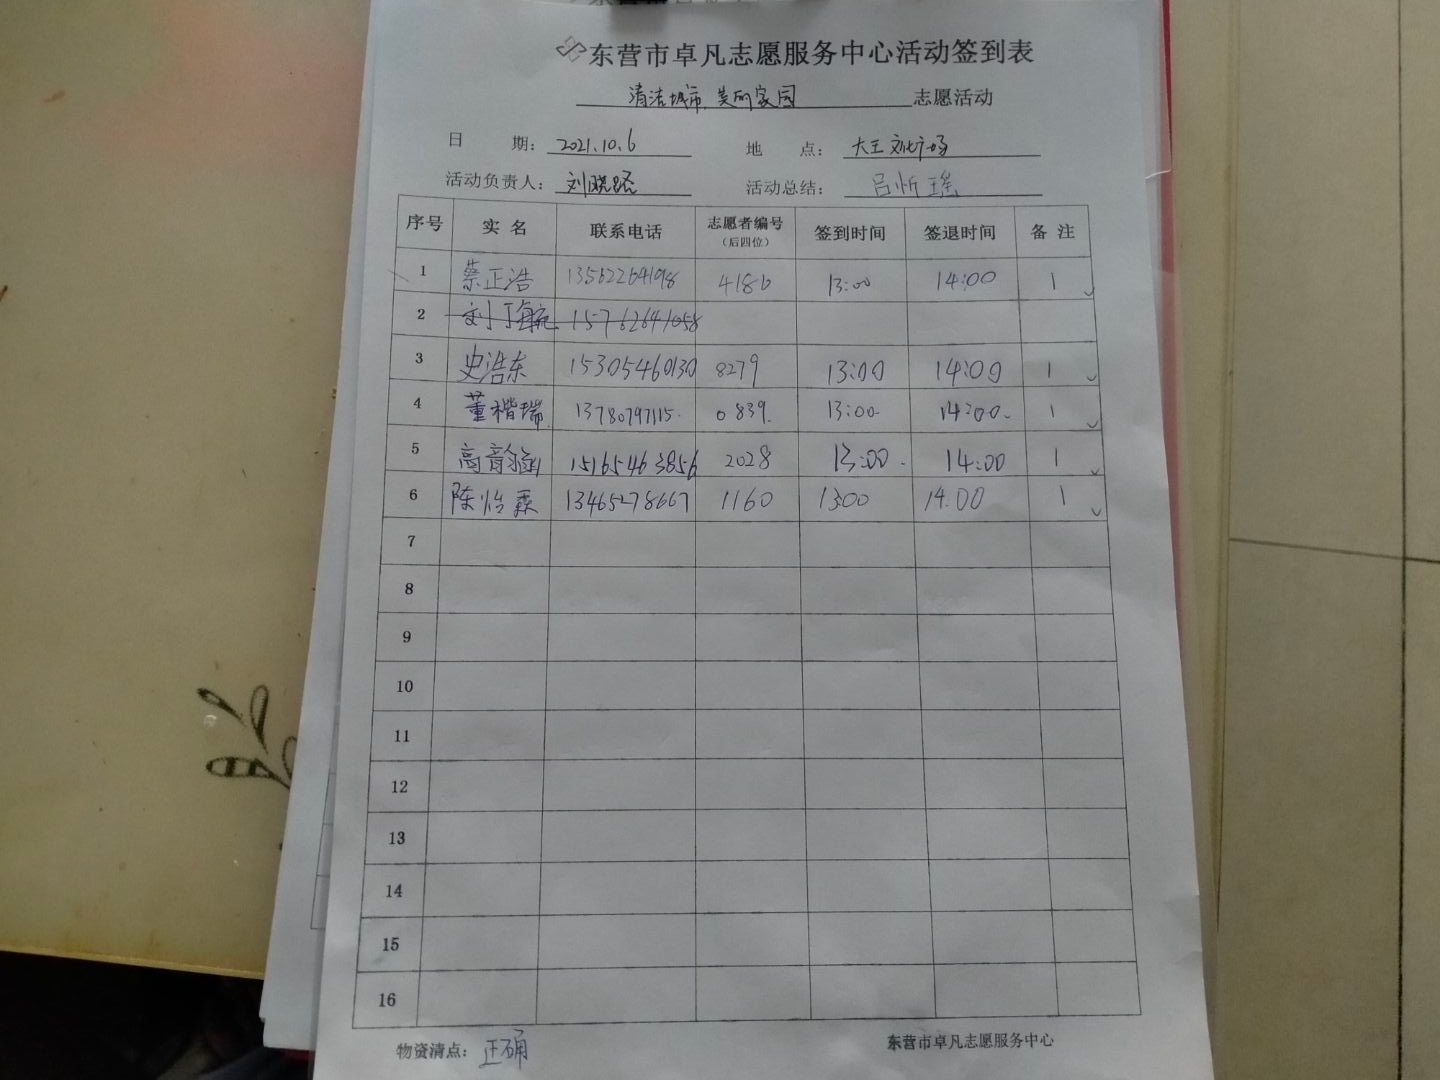 东营市卓凡志愿服务中心活动签到表
清洁城市,美丽家园 志愿活动
日 期: 2021.10.6 地 点: 大王文化广场
活动负责人: 刘晓路 活动总结: 吕忻瑶
序号 实名 联系电话 志愿者编号(后四位) 签到时间 签退时间 备注
1 蔡正浩 13562264198 4186 13:00 14:00 1
2 刘 15762641058
3 史浩东 15305460130 8279 13:00 14:00 1
4 董楷瑞 13780797115 0839 13:00 14:00 1
5 高韵涵 15165463856 2028 13:00 14:00 1
6 陈怡霖 13465278667 1160 13:00 14.00 1
7
8
9
10
11
12
13
14
15
16
物资清点: 正确 东营市卓凡志愿服务中心